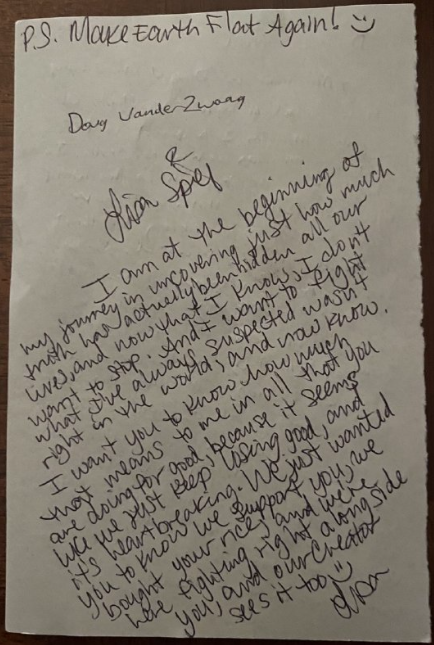 P.S. Make Earth Flat Again! :)
Doug VanderZwaag
&
Lisa
I am at the beginning of
my journey in uncovering just how much
truth has actually been hidden all our
lives, and now that I know, I don't
want to stop. And I want to fight
what I've always suspected wasn't
right in the world, and now know.
I want you to know how much
that means to me in all that you
are doing for good, because it seems
like we just keep losing good, and
it's heartbreaking. We just wanted
you to know we support you, we
bought your rice, and we're
here fighting right alongside
you, and our Creator
sees it too :)
Lisa